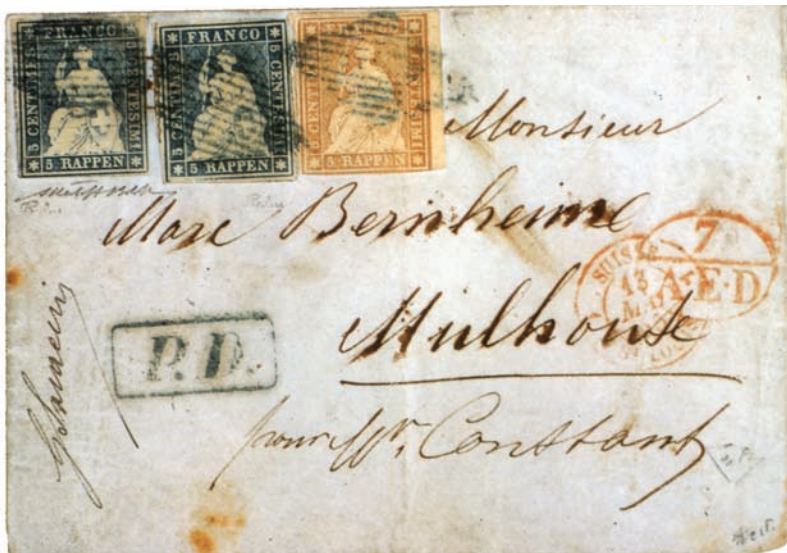 FRANCO
5 CENTIMES
5 CENTESIMI
5 RAPPEN
FRANCO
5 CENTIMES
5 CENTESIMI
5 RAPPEN
5 CENTIMES
5 CENTESIMI
5 RAPPEN
Monsieur
Marc Bernheime
Mulhouse
pour Mr. Constant
P.D.
SUISSE
13
7
A·E·D